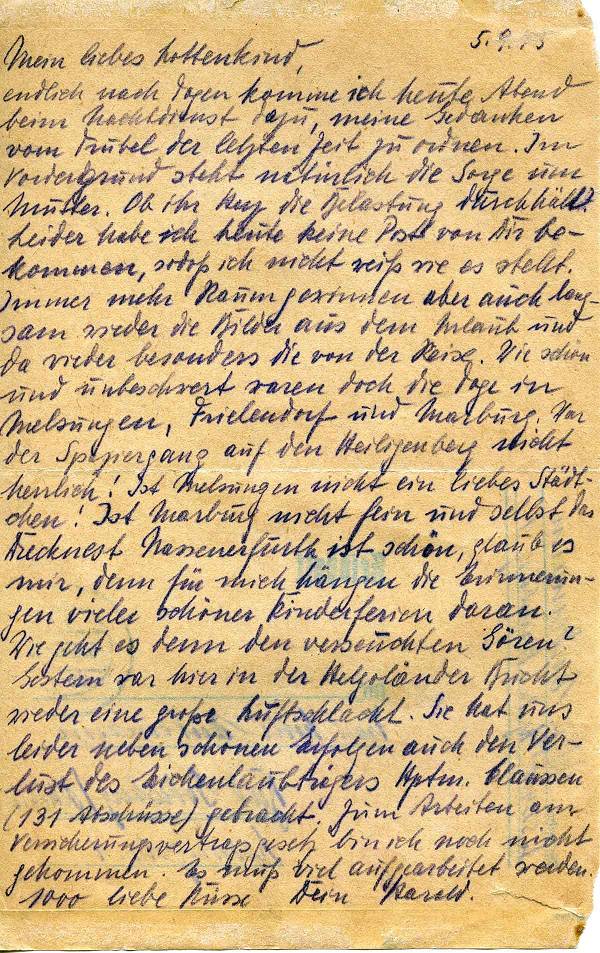 5.9.45
Mein liebes Lottenkind,
endlich nach Tagen komme ich heute Abend
beim Nachtdienst dazu, meine Gedanken
vom Trubel der letzten Zeit zu ordnen. Im
Vordergrund steht natürlich die Sorge um
Mutter. Ob ihr Herz die Belastung durchhält?
Leider habe ich heute keine Post von Dir be-
kommen, sodaß ich nicht weiß wie es steht.
Immer mehr Raum gewinnen aber auch lang-
sam wieder die Bilder aus dem Urlaub und
da wieder besonders die von der Reise. Wie schön
und unbeschwert waren doch die Tage in
Melsungen, Frielendorf und Marburg. War
der Spaziergang auf den Heiligenberg nicht
herrlich! Ist Melsungen nicht ein liebes Städt-
chen! Ist Marburg nicht fein und selbst das
Drecknest Nassenerfurth ist schön, glaub es
mir, denn für mich hängen die Erinnerun-
gen vieler schöner Kinderferien daran.
Wie geht es denn den verseuchten Gören?
Gestern war hier in der Helgoländer Bucht
wieder eine große Luftschlacht. Sie hat uns
leider neben schönen Erfolgen auch den Ver-
lust des Eichenlaubträgers Hptm. Claussen
(131 Abschüsse) gebracht. Zum Arbeiten am
Versicherungsvertragsgesetz bin ich noch nicht
gekommen. Es muß viel aufgearbeitet werden.
1000 liebe Küsse Dein Harald.